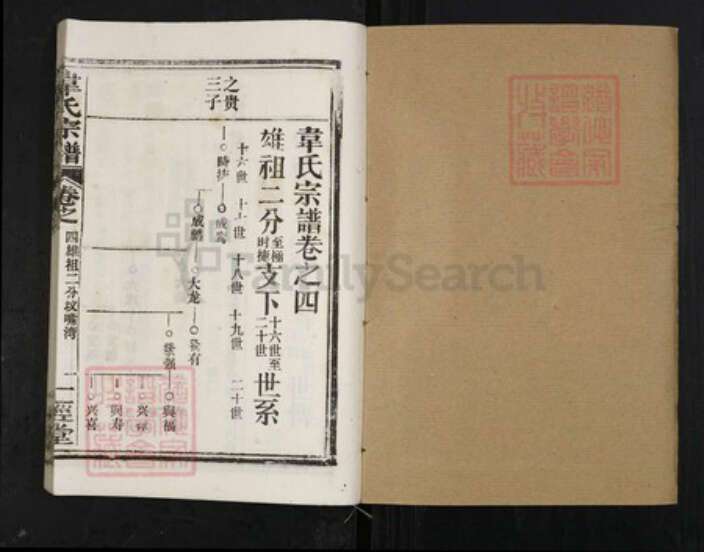 韋氏宗譜卷之四
雄祖二分至極时捷支下十六世至二十世世系
十六世 十七世 十八世 十九世 二十世
之贵三子
時捷
成鹏
大龙
發有
發强
興福
兴禄
興寿
兴喜
韋氏宗譜
卷之
四雄祖二分坟嘴湾
一經堂
FamilySearch